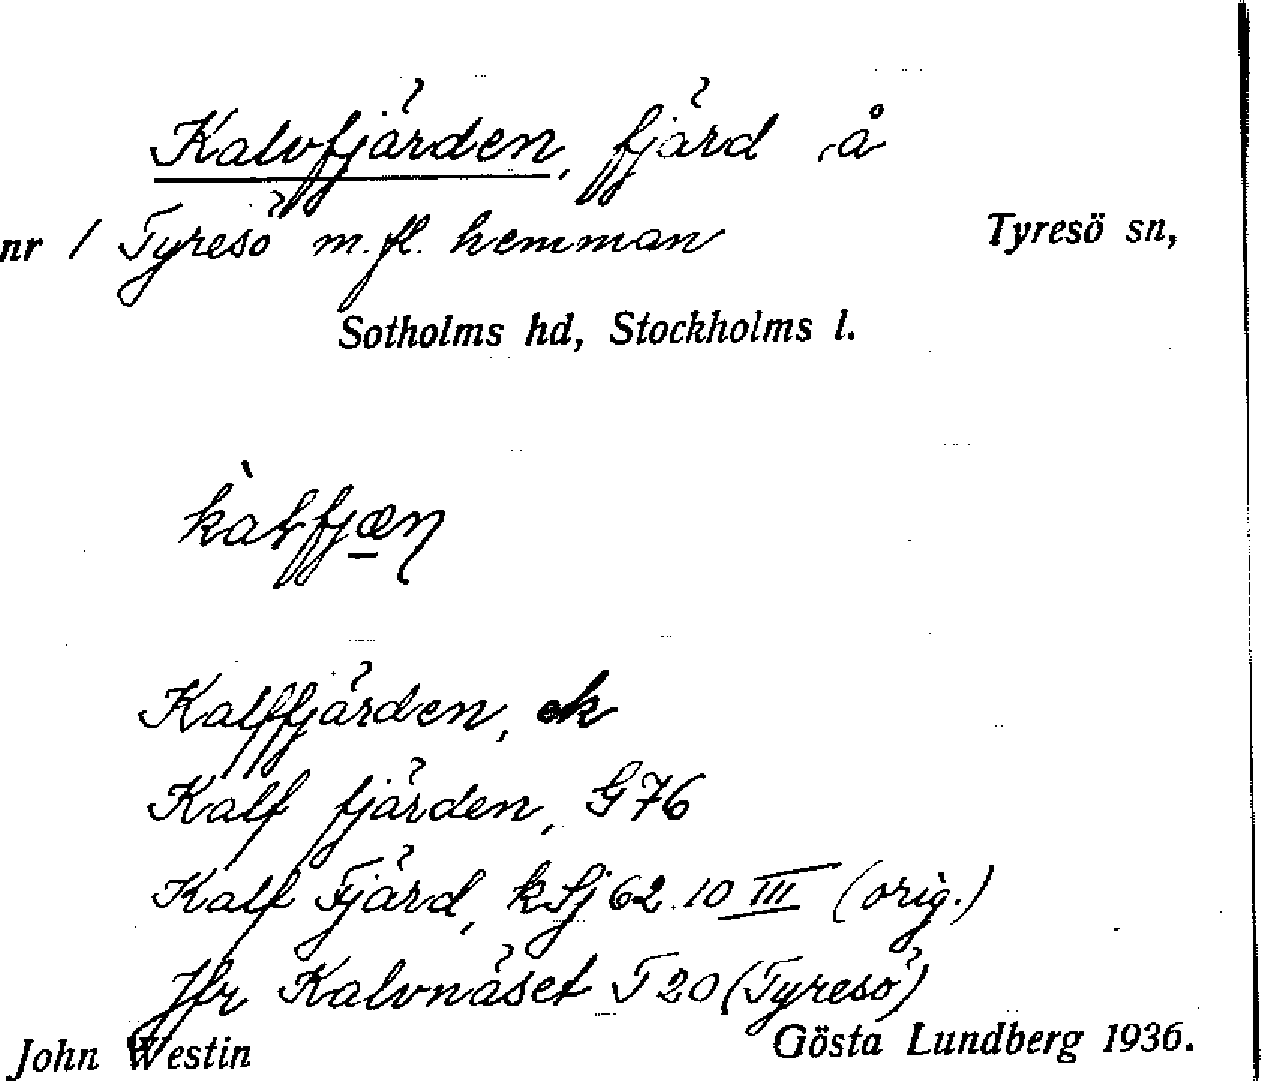 Kalvfjärden, fjärd å
nr 1 Tyresö m.fl. hemman Tyresö sn,
Sotholms hd, Stockholms l.
Kalffjärden, ek
Kalf fjärden, G76
Kalf Fjärd, kSj 62.10 III (orig.)
Jfr Kalvnäset T 20 (Tyresö)
John Westin Gösta Lundberg 1936.